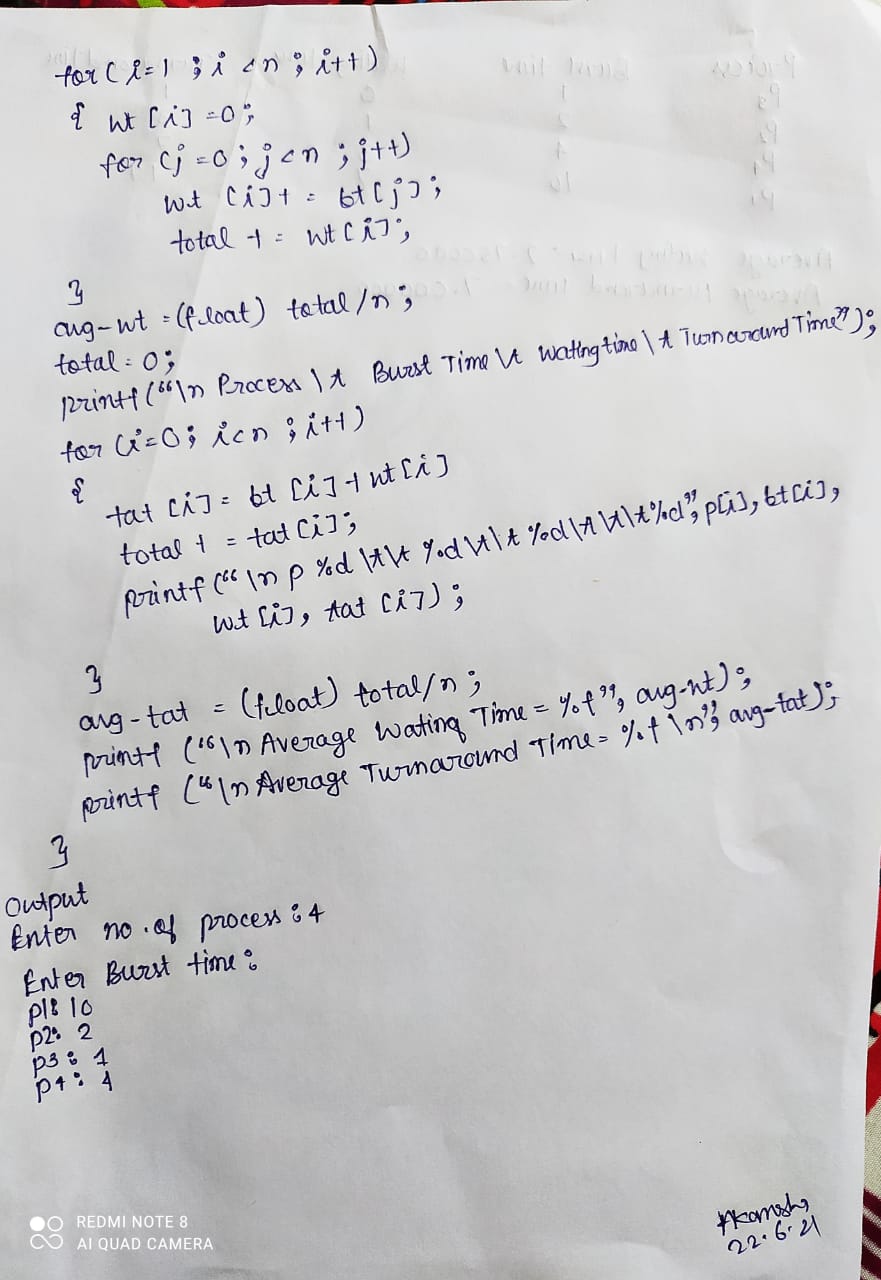 for( i=1 ; i <n ; i++)
{ wt [i] =0;
for (j =0 ; j <n ; j++)
wt [i]+ = bt[j];
total + = wt[i];
}
avg-wt =(float) total /n ;
total = 0;
printf("\n Process \t Burst Time \t Wating time \t Turnaround Time");
for (i=0; i<n ; i++)
{
tat [i] = bt [i] + wt [i]
total + = tat[i];
printf ("\n p %d \t\t %d \t\t %d \t \t\t%d", p[i], bt[i],
wt [i], tat [i]);
}
avg-tat = (float) total/n ;
printf ("\n Average Wating Time = %f", avg-wt);
printf ("\n Average Turnaround Time = %f \n", avg-tat);
}
Output
Enter no. of process : 4
Enter Burst time :
p1: 10
p2: 2
p3 : 1
p4 : 4
22.6.21
REDMI NOTE 8
AI QUAD CAMERA